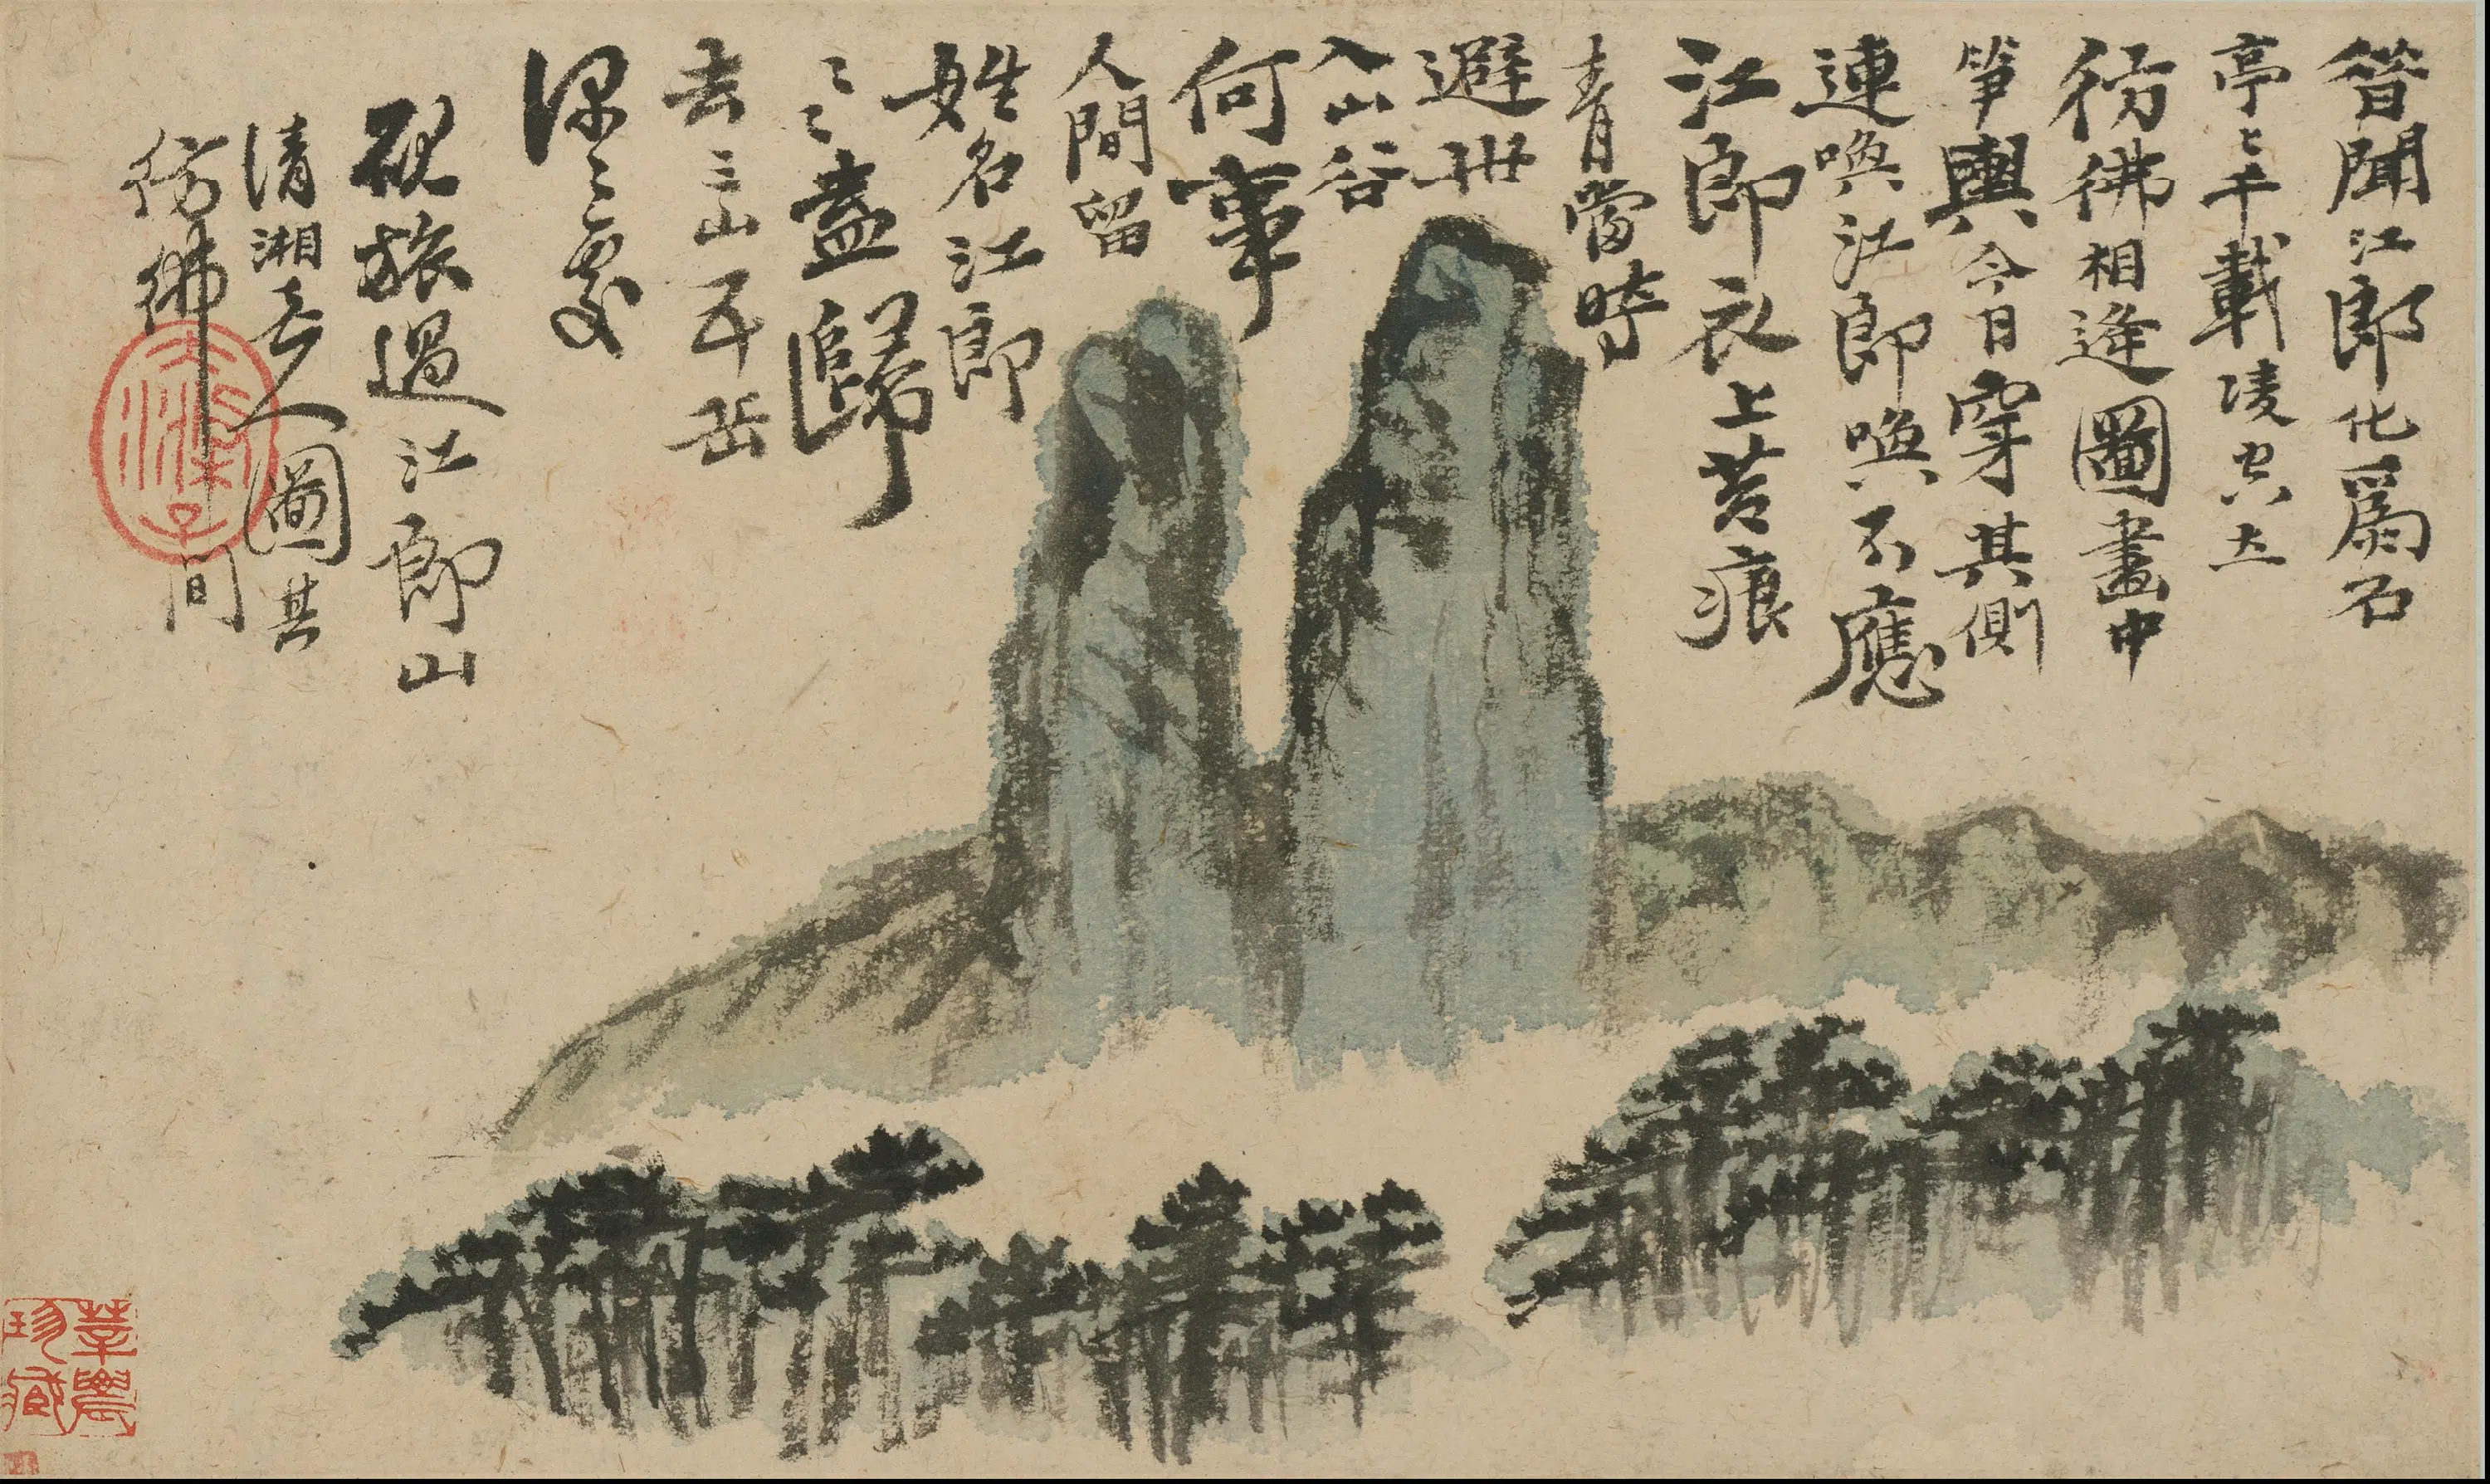 昔聞江郎化爲石
亭〻千載凌空立
彷彿相逢圖畫中
笋輿今日穿其側
連喚江郎喚不應
江郎衣上苔痕
青當時
避世
入山谷
何事
人間留
姓名江郎
〻〻盍歸
去三山五岳
深〻處
硯旅過江郎山
清湘老人圖其
彷彿間
莘農
珍藏